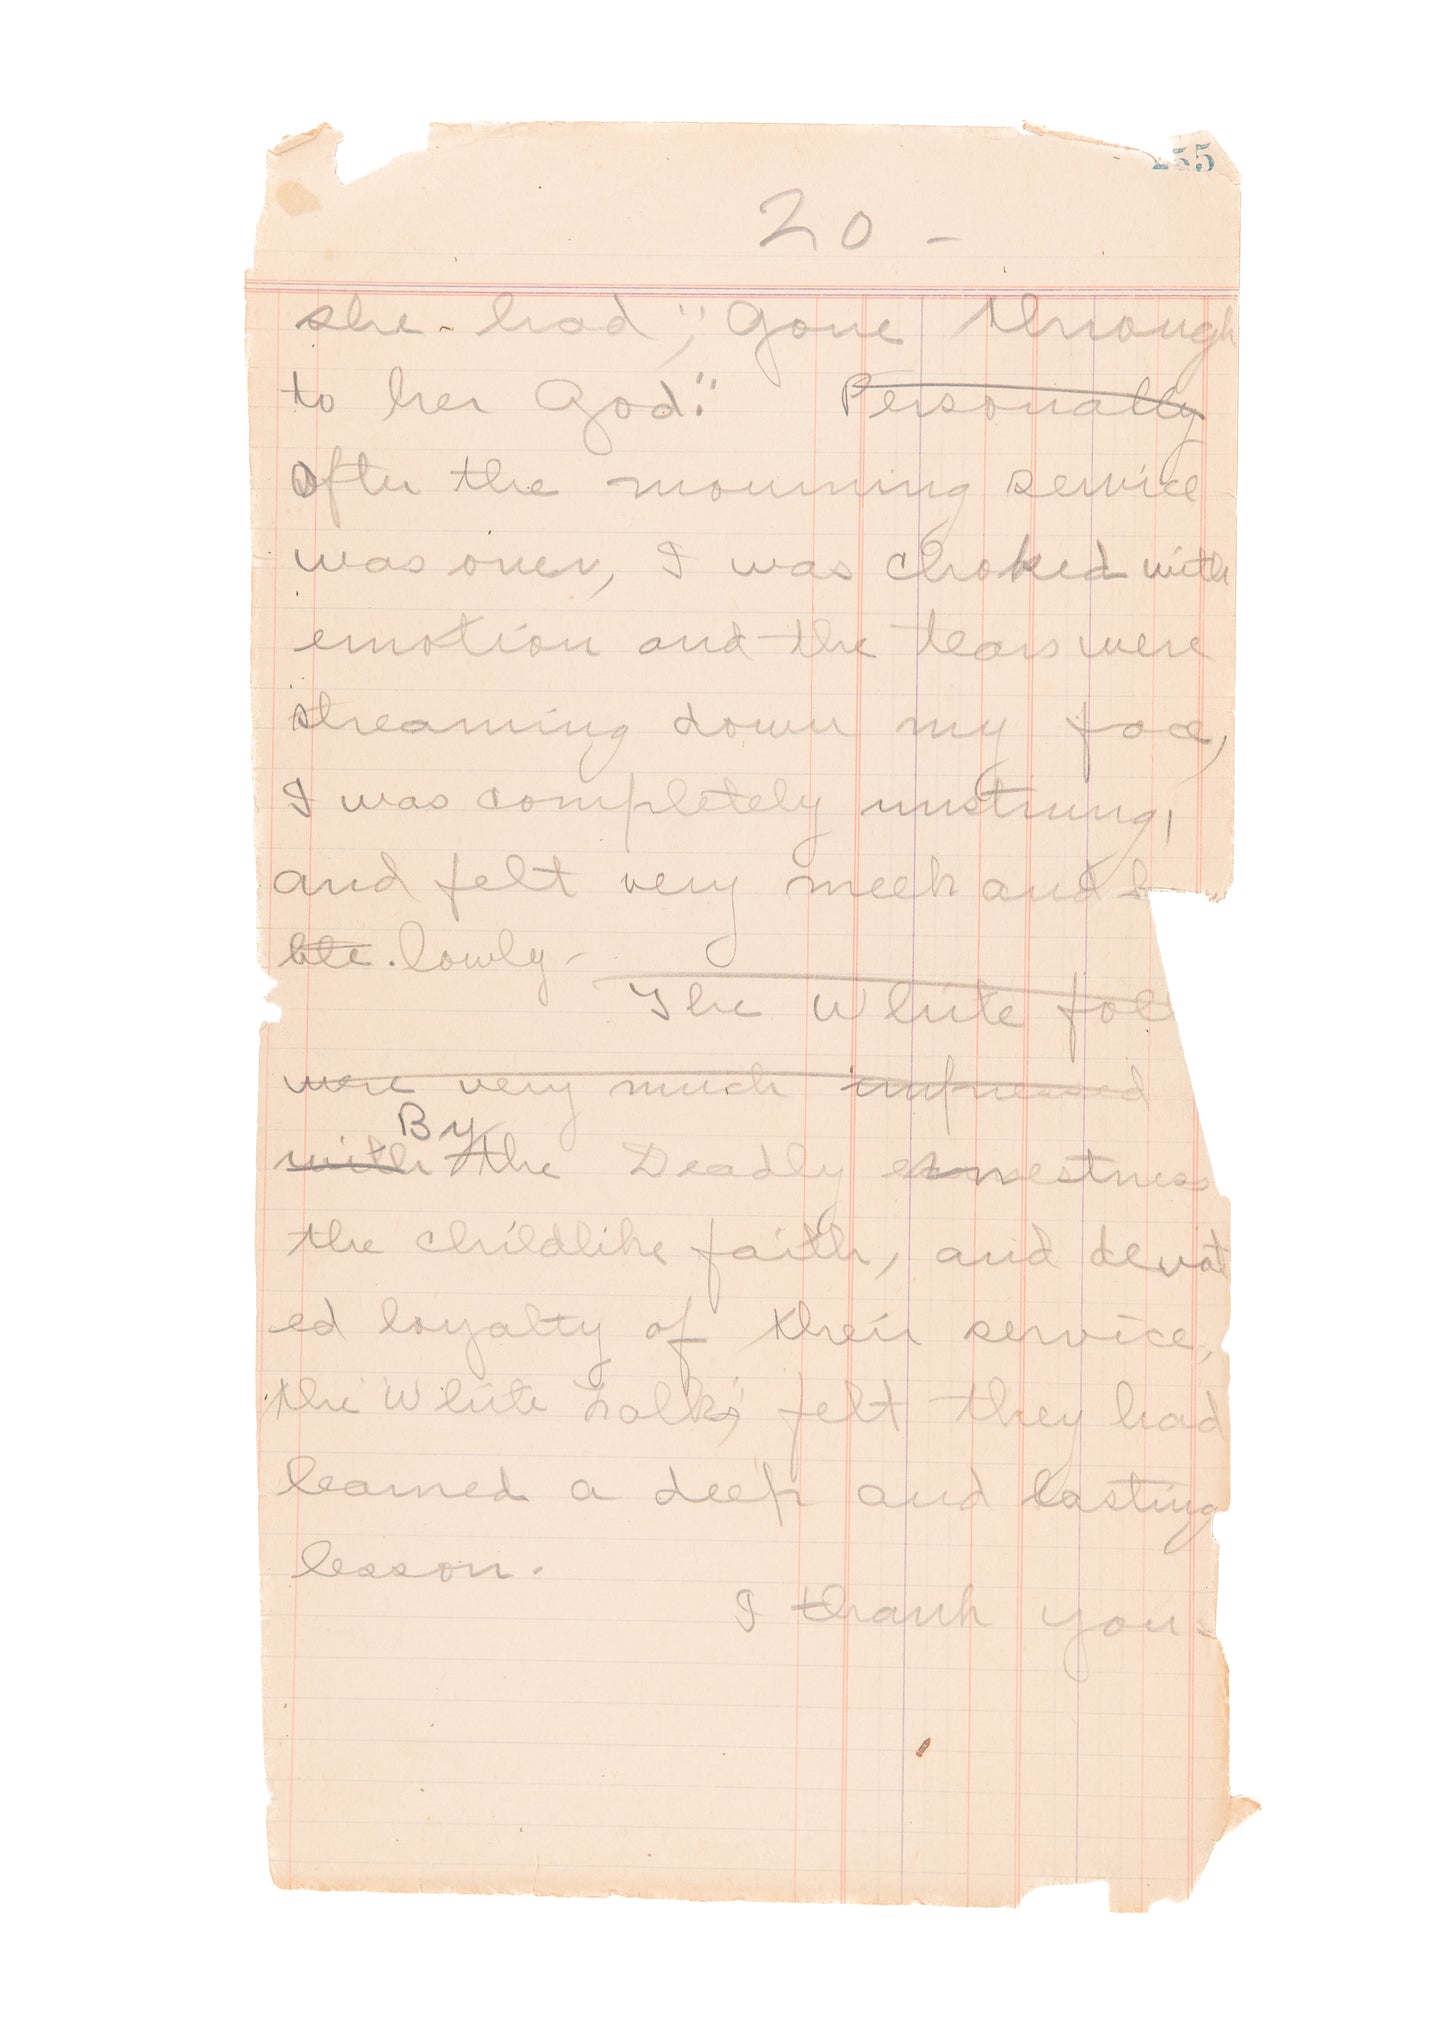 55
20 -
she had, "Gone through
to her God." Personally
after the mourning service
was over, I was choked with
emotion and the tears were
streaming down my face,
I was completely unstrung,
and felt very meek and
lowly-
The White fol
were very much impressed
By
with the Deadly earnestness
the childlike faith, and devot
ed loyalty of their service,
the White Folks, felt they had
learned a deep and lasting
lesson.
I thank you-